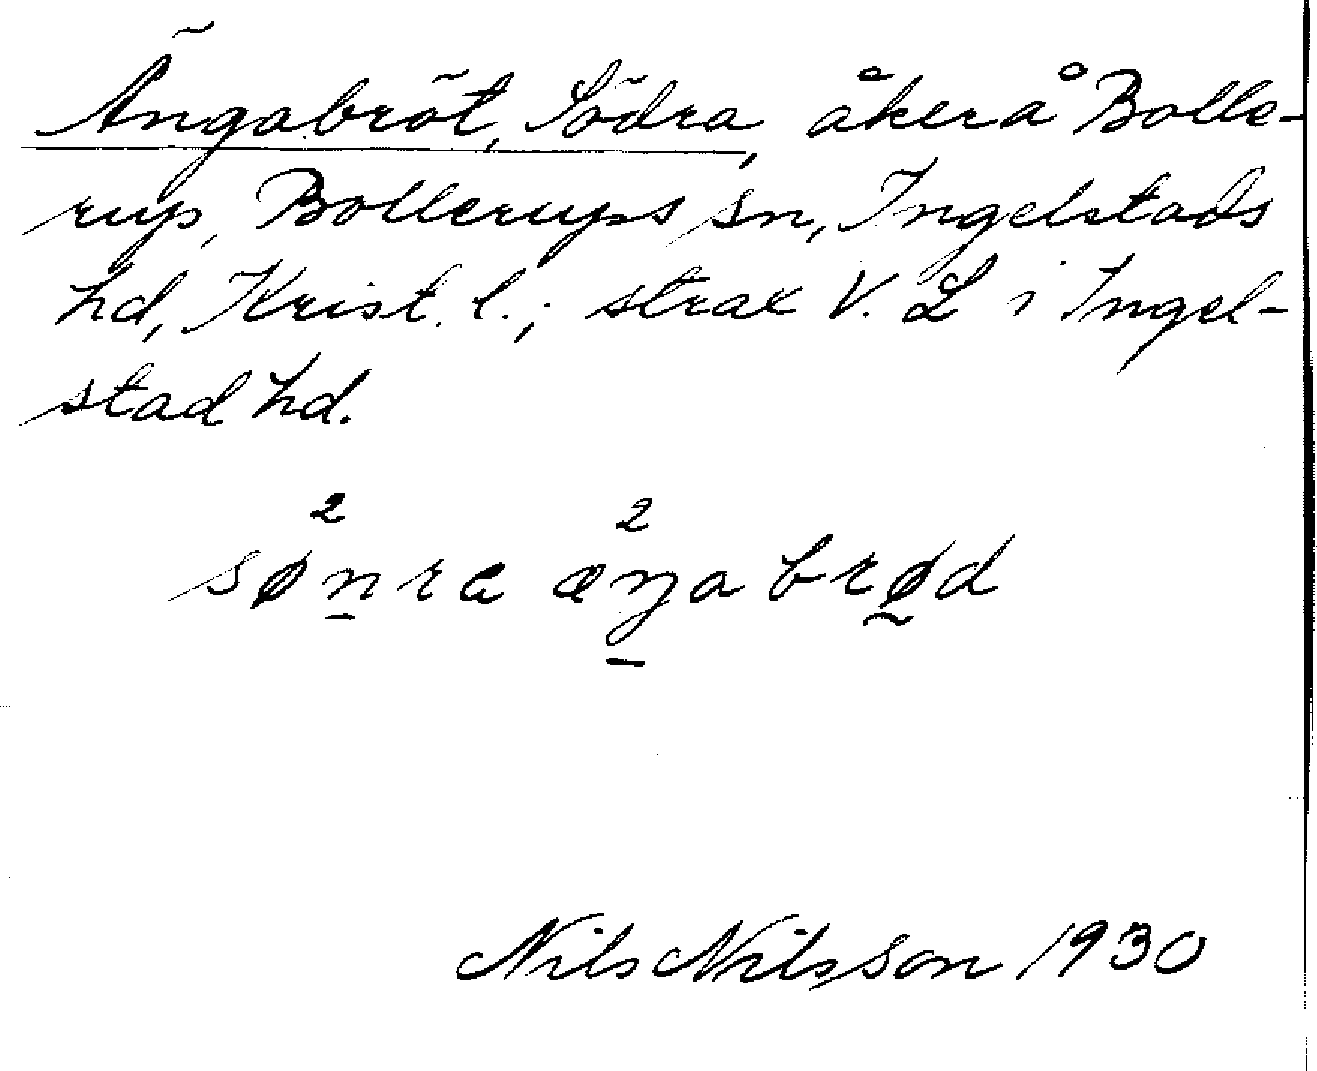 Ängabröt, Södra, åker å Bolle-
rup, Bollerups sn, Ingelstads
hd, Krist. l.; strax V. L i Ingel-
stad hd.
2 2
sønra æŋabrød
Nils Nilsson 1930